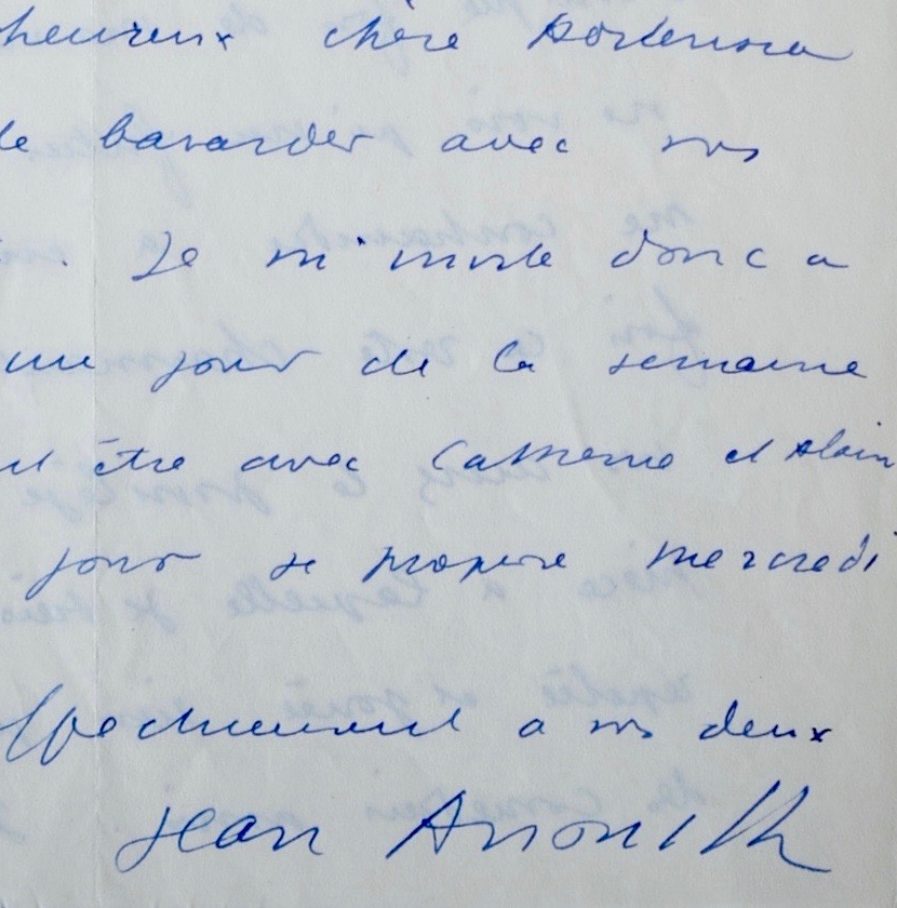 heureux chère Hortensia
de bavarder avec vous
. Je m'invite donc a
une jour de la semaine
ut être avec Catherine et Alain
jour je propose mercredi
affectueusement a vous deux
Jean Anouilh